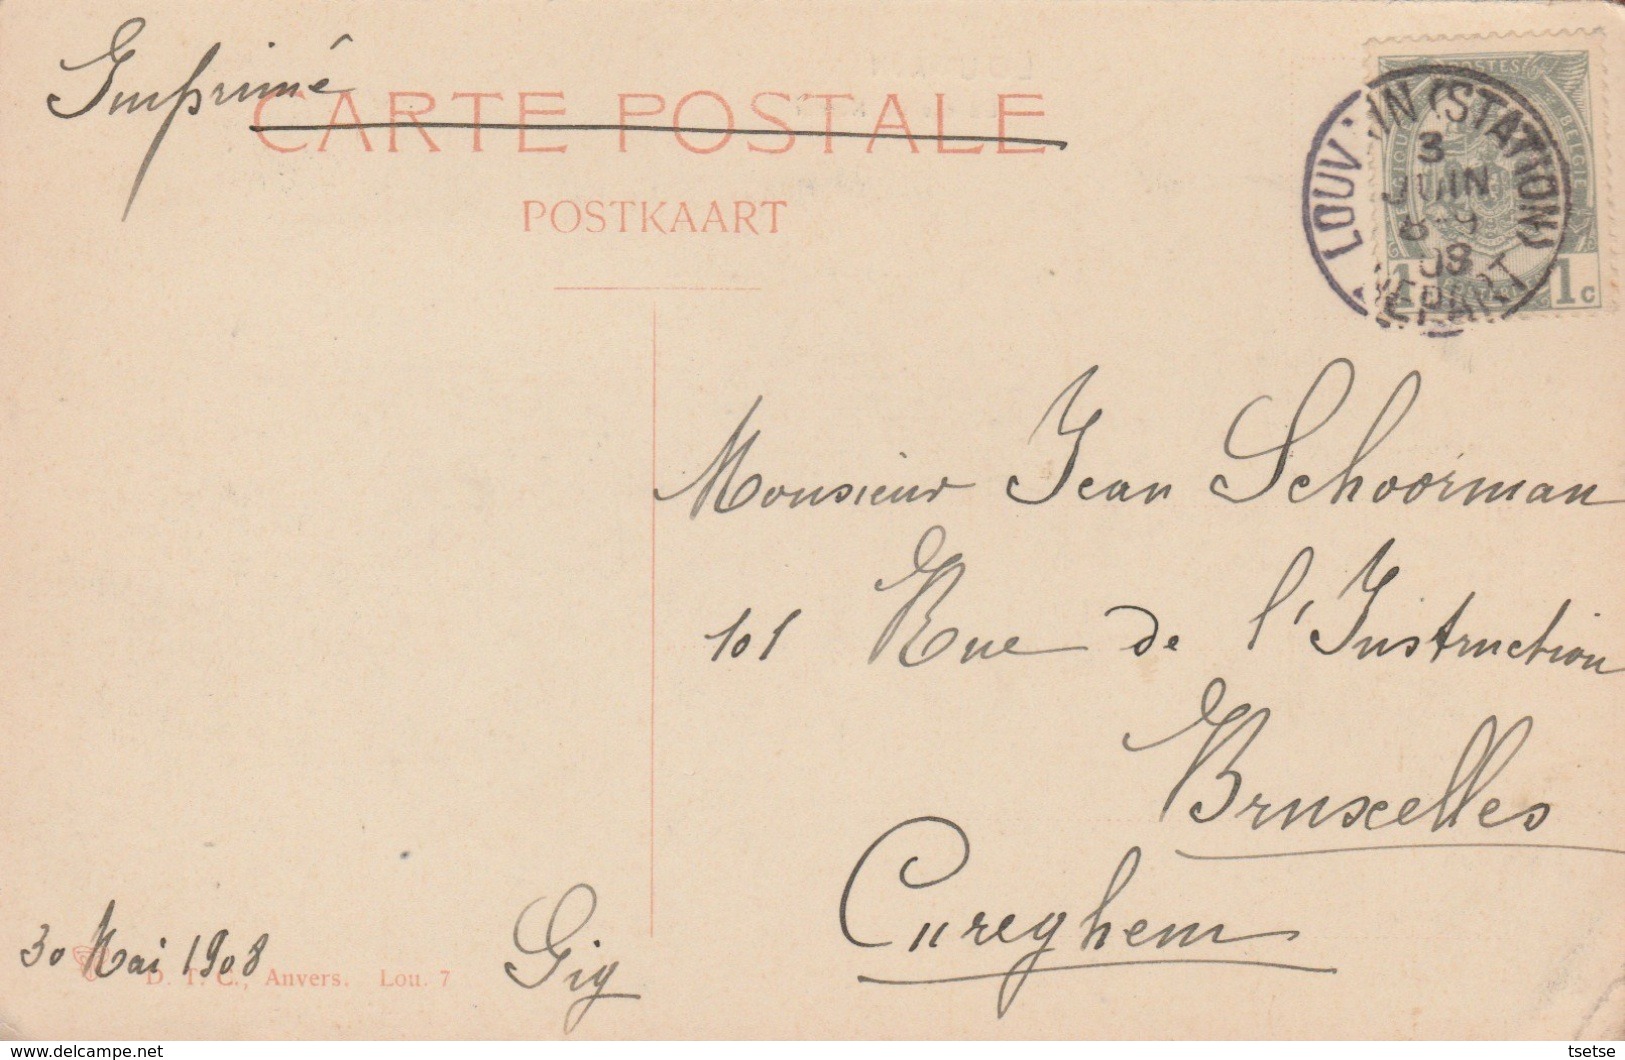 Imprimé
CARTE POSTALE
POSTKAART
LOUVAIN (STATION)
3
JUIN
8-9
08
DEPART
POSTES
BELGIQUE
BELGIE
1 1c
Monsieur Jean Schoorman
101 Rue de l'Instruction
Bruxelles
Cureghem
30 Mai 1908
Gig
D. T. C., Anvers. Lou. 7
www.delcampe.net
tsetse